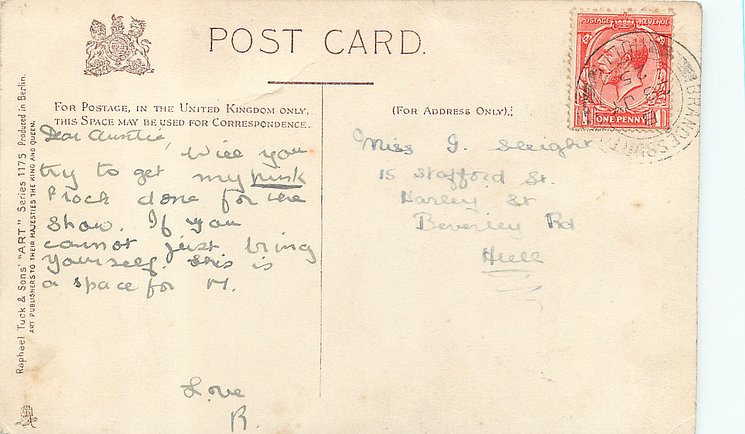 POST CARD.
FOR POSTAGE, IN THE UNITED KINGDOM ONLY,
THIS SPACE MAY BE USED FOR CORRESPONDENCE.
(FOR ADDRESS ONLY).
Dear Auntie,
Will you
try to get my pink
frock done for the
show. If you
cannot just bring
yourself. This is
a space for M.
Love
R.
Miss J. Sleight
15 Stafford St.
Harley St
Beverley Rd
Hull
POSTAGE REVENUE
ONE PENNY
Raphael Tuck & Sons' "ART" Series 1175 Produced in Berlin.
ART PUBLISHERS TO THEIR MAJESTIES THE KING AND QUEEN.